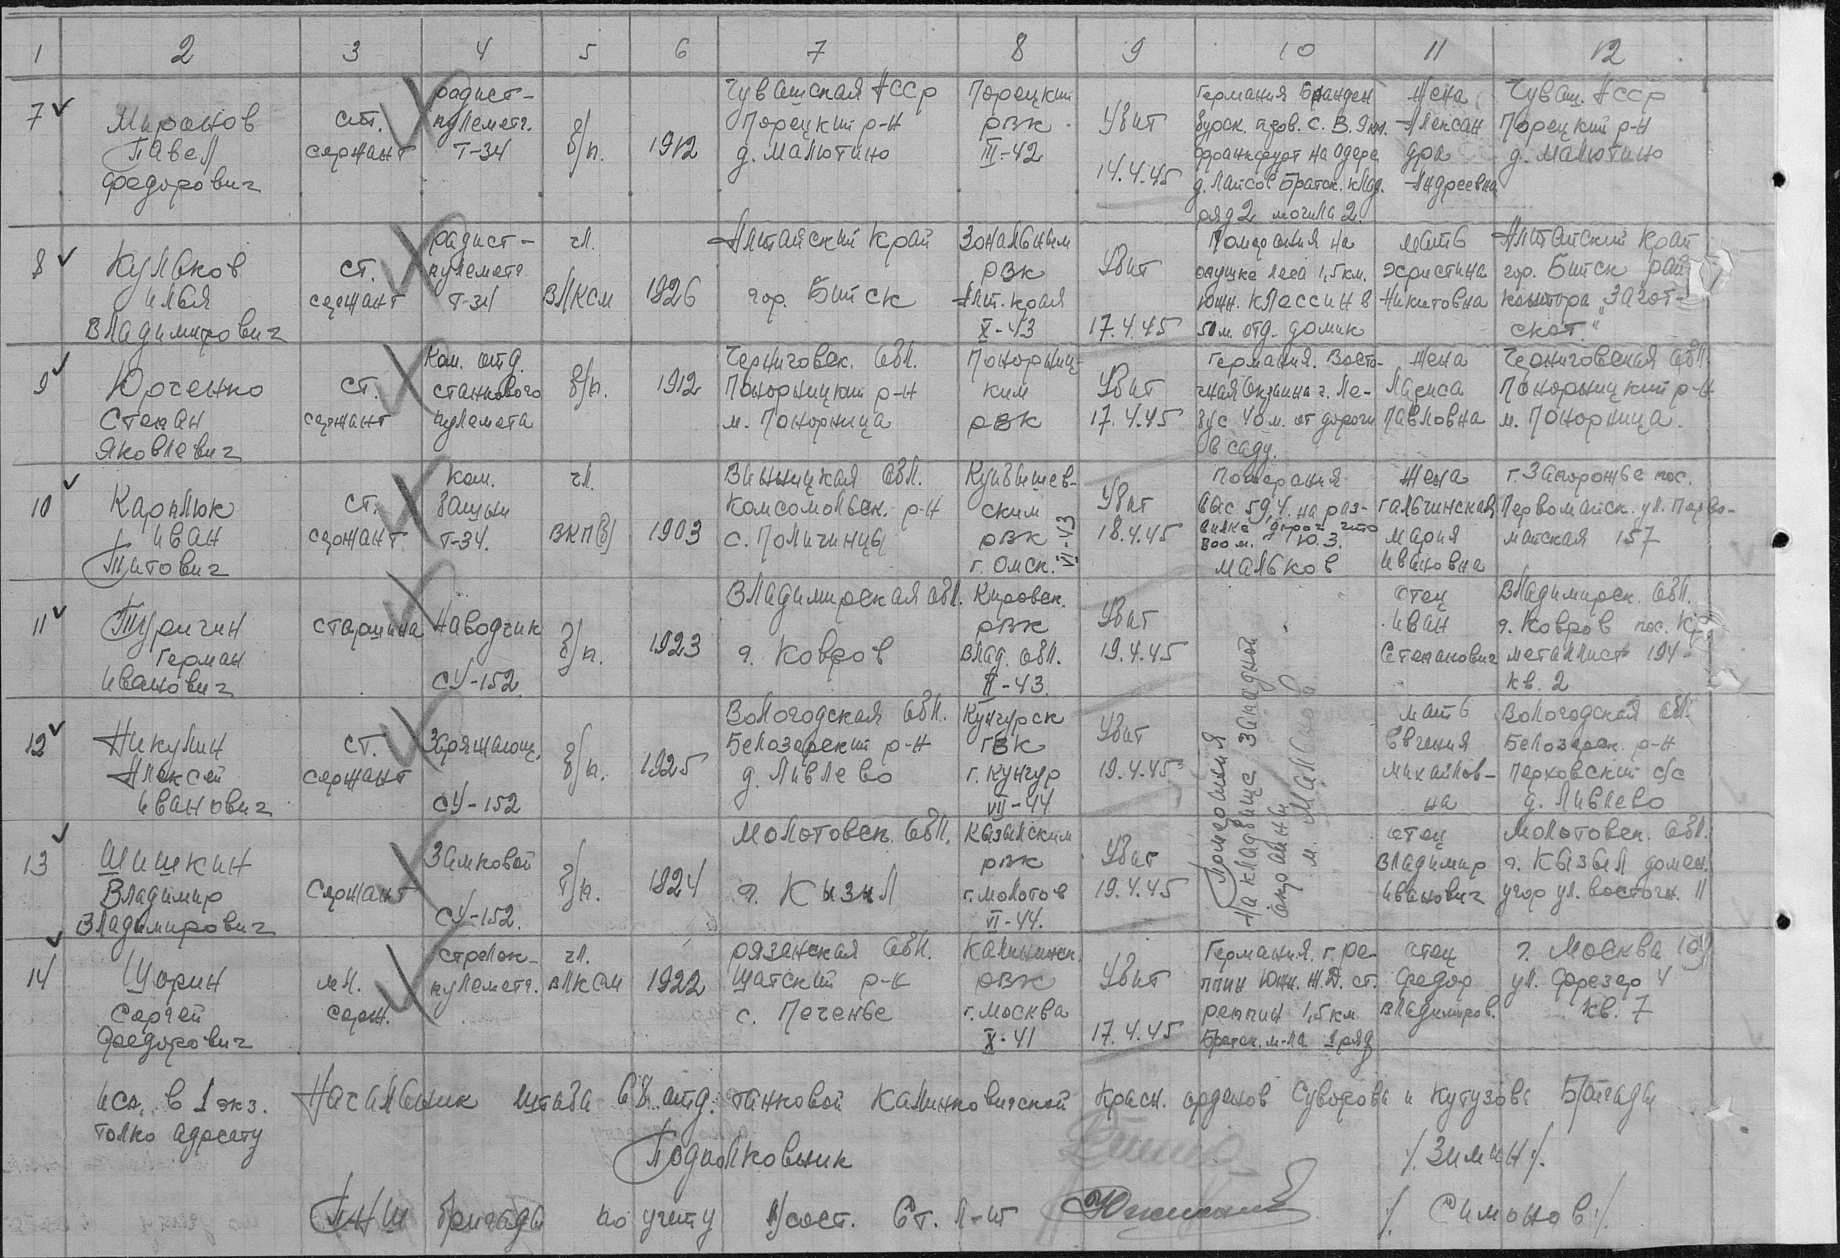 1 2 3 4 5 6 7 8 9 10 11 12
7 Миронов Павел Федорович
ст. сержант
радист-
пулеметч.
Т-34
б/п.
1912
Чувашская АССР
Порецкий р-н
д. Малютино
Порецким
РВК
III-42
Убит
14.4.45
Германия Бранден
бургск. пров. С. В. 9 км.
Франкфурт на Одере
Братск. клад.
ряд 2 могила 2.
Жена
Алексан
дра
Андреевна
Чуваш. АССР
Порецкий р-н
д. Малютино
8 Кульков
Илья
Владимирович
ст.
сержант
радист-
пулеметч
Т-34
чл.
ВЛКСМ
1926
Алтайский край
гор. Бийск
Зональным
РВК
Алт. края
X-43
Убит
17.4.45
на
опушке леса 1,5 км.
южн. Клессин в
50 м. отд. домик
мать
Христина
Никитовна
Алтайский край
гор. Бийск рай
контора "Загот-
скот"
9 Юрченко
Степан
Яковлевич
ст.
сержант
Ком. отд.
станкового
пулемета
б/п.
1912
Черниговск. обл.
Понорницкий р-н
м. Понорница
Понорниц-
ким
РВК
Убит
17.4.45
Германия. Восто-
чная окраина г. Ле-
бус 40 м. от дороги
в саду.
Жена
Лариса
Павловна
Черниговская обл.
Понорницкий р-н
м. Понорница.
10 Карплюк
Иван
Титович
ст.
сержант
ком.
башни
Т-34.
чл.
ВКП(б)
1903
Винницкая обл.
Комсомольск. р-н
с. Поличинцы
Куйбышев-
ским
РВК
г. Омск. VI-43
Убит
18.4.45
Померания
выс 59,4. на раз-
вилке дорог
800 м. Ю.З.
Мальков
Жена
Гальчинская
Мария
Ивановна
г. Запорожье пос.
Первомайск. ул. Перво-
майская 157
11 Туричин
Герман
Иванович
старшина
Наводчик
СУ-152
б/п.
1923
Владимирская обл.
г. Ковров
Кировск.
РВК
Влад. обл.
II-43.
Убит
19.4.45
Померания
на кладбище западной
окраины
м. Мальков
отец
Иван
Степанович
Владимирск. обл.
г. Ковров пос.
металлист 194
кв. 2
12 Никулин
Алексей
Иванович
ст.
сержант
Заряжающ.
СУ-152
б/п.
1925
Вологодская обл.
Белозерский р-н
д. Ливлево
Кунгурск
ГВК
г. Кунгур
VII-44
Убит
19.4.45
мать
Евгения
Михайлов-
на
Вологодская обл.
Белозерск. р-н
Перховский с/с
д. Ливлево
13 Шишкин
Владимир
Владимирович
Сержант
Замковой
СУ-152.
б/п.
1924
Молотовск. обл.
г. Кызыл
Кызылским
РВК
г. Молотов
VI-44.
Убит
19.4.45
отец
Владимир
Иванович
Молотовск. обл.
г. Кызыл домен.
угор ул. Восточн. 11
14 Щорин
Сергей
Федорович
мл.
серж.
стрелок-
пулеметч.
чл.
ВЛКСМ
1922
Рязанская обл.
Шатский р-н
с. Печенье
Калининск.
РВК
г. Москва
X-41
Убит
17.4.45
Германия. г. Ре-
ппин Южн. Ж.Д. ст.
Реппин 1,5 км
Братск. м-ла 1 ряд
отец
Федор
Владимиров.
г. Москва
ул. Фрезер 4
кв. 7
исп. в 1 экз.
толко адресату
Начальник штаба 68 отд. танковой Калинковичской Красн. орденов Суворова и Кутузова Бригады
Подполковник /Зимин/.
ПНШ бригады по учету л/сост. Ст. л-т /Симонов/.